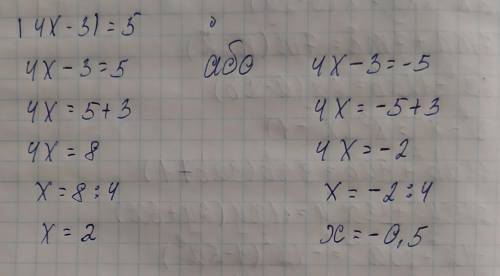 |4x-3|=5
4x-3=5 або 4x-3=-5
4x=5+3 4x=-5+3
4x=8 4x=-2
x=8:4 x=-2:4
x=2 x=-0,5